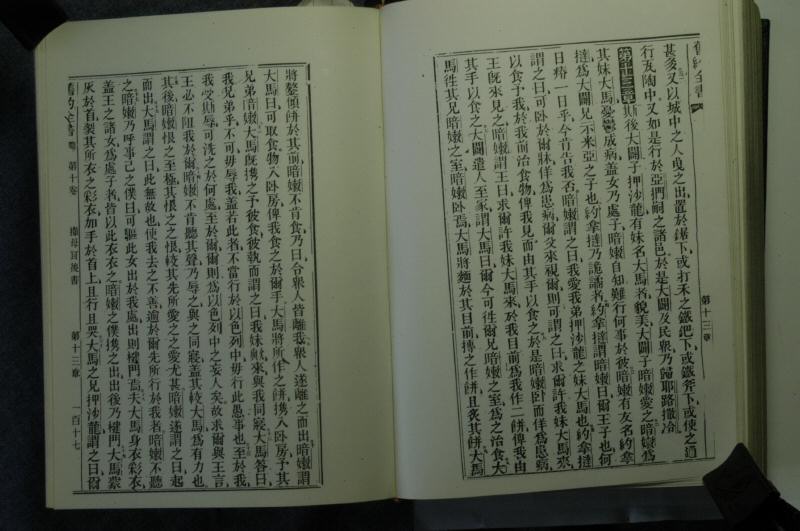 舊約全書
第十三章
甚多又以城中之人曳之出置於鋸下或打禾之鐵耙下或鐵斧下或使之過
行瓦陶中又如是行於亞捫嗣之諸邑於是大闢及民衆乃歸耶路撒冷
第十三章 斯後大闢子押沙龍有妹名大馬者貌美大闢子暗嫩愛之暗嫩爲
其妹大馬憂鬱成病蓋女乃處子暗嫩自知難行何事於彼暗嫩有友名約拿
撻爲大闢兄示米亞之子也約拿撻乃詭譎者約拿撻謂暗嫩曰爾王子也何
日瘠一日乎今肯告我否暗嫩謂之曰我愛我弟押沙龍之妹大馬也約拿撻
謂之曰可卧於爾牀佯爲患病爾父來視爾則可謂之曰求爾許我妹大馬來
以食予我於我前治食物俾我見而由其手以食之於是暗嫩卧而佯爲患病
王旣來見之暗嫩謂王曰求爾許我妹大馬來於我目前爲我作二餅俾我由
其手以食之大闢遣人至家謂大馬曰爾今可往爾兄暗嫩之室爲之治食大
馬往其兄暗嫩之室暗嫩卧焉大馬將麵於其目前摶之作餅且炙其餅大馬
將鏊傾餅於其前暗嫩不肯食乃曰令衆人皆離我衆人遂離之而出暗嫩謂
大馬曰可取食物入卧房俾我食之於爾手大馬將所作之餅携入卧房予其
兄弟暗嫩大馬旣携之予彼食彼執而謂之曰我妹歟來與我同寢大馬答曰
我兄弟乎不可毋辱我蓋若此者不當行於以色列中毋行此愚事也至於我
我受斯辱可洗之於何處至於爾爾則爲以色列中之妄人矣故求爾與王言
王必不阻我於爾暗嫩不肯聽其聲乃辱之與之同寢蓋其較大馬爲有力也
其後暗嫩恨之至極其恨之之恨較其先所愛之之愛尤甚暗嫩遂謂之曰起
而出大馬謂之曰此無故也使我去之不善逾於爾先所行於我者暗嫩不聽
之暗嫩乃呼事己之僕曰可驅此女出於我處出則楗門焉夫大馬身衣彩衣
蓋王之諸女爲處子者皆以此衣衣之暗嫩之僕携之出出後乃楗門大馬蒙
灰於首裂其所衣之彩衣加手於首上且行且哭大馬之兄押沙龍謂之曰爾
舊約全書 第十卷 撒母耳後書 第十三章 一百十七